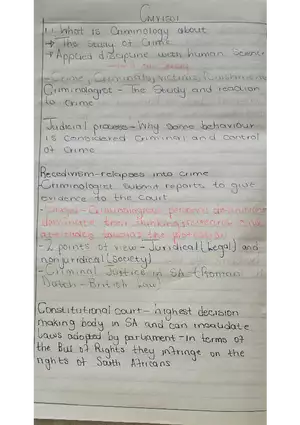 CMY1501
1: What is Criminology about
→ The study of Crime
→ Applied discipline with human science
- Crime, Criminality, victims,
Criminologist - The study and reaction
to crime
Judicial process - Why some behaviour
is considered criminal and control
of crime
Recedivism - relapses into crime
- Criminologist submit reports to give
evidence to the court
- 2 points of view - Juridical (Legal) and
nonjuridical (society)
- Criminal Justice in SA (Roman
Dutch - British Law)
Constitutional court - highest decision
making body in SA and can invalidate
laws adopted by parliament - in terms of
the Bill of Rights they infringe on the
rights of South Africans